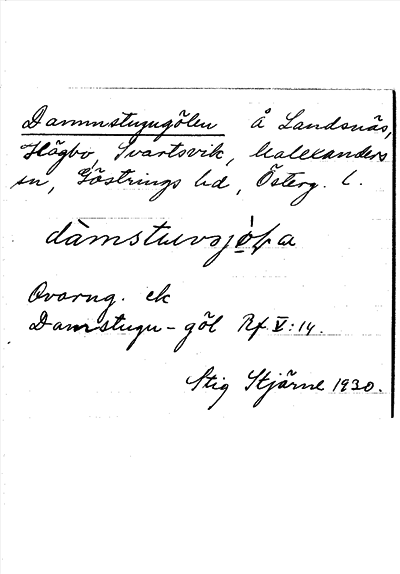 Dammstugugölen å Landsnäs,
Högbo, Svartsvik, Malexanders
sn, Göstrings hd, Österg. l.
dàmstuvsjö̀ra
Ovanng. ek
Damstugu-göl Rf. V:14.
Stig Stjärne 1930.